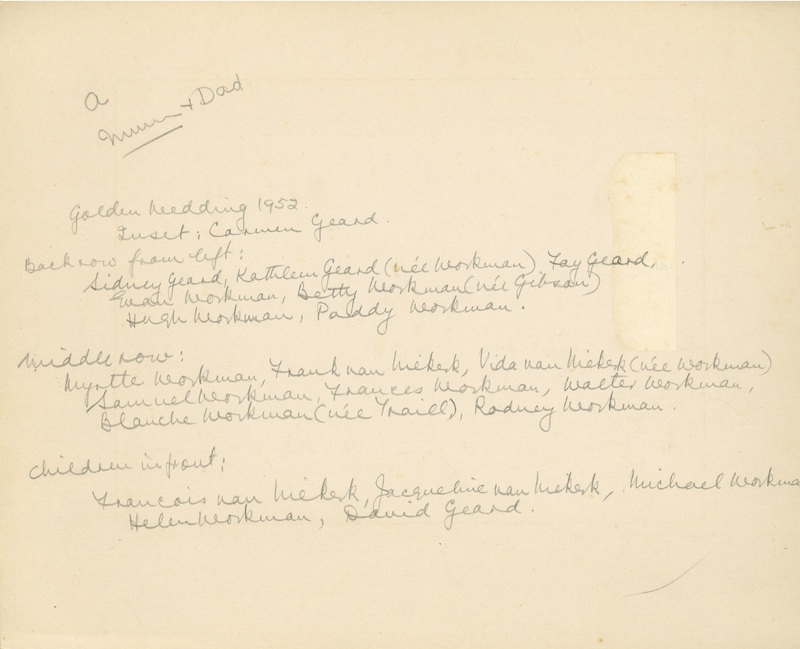 a
Mum + Dad
Golden Wedding 1952.
Inset; Carmen Geard.
Back row from left:
Sidney Geard, Kathleen Geard (née Workman) Fay Geard,
Ewan Workman, Betty Workman (née Gibson)
Hugh Workman, Paddy Workman.
Middle row:
Myrtle Workman, Frank van Niekerk, Vida van Niekerk (née Workman)
Samuel Workman, Frances Workman, Walter Workman,
Blanche Workman (née Traill), Rodney Workman.
Children in front;
Francois van Niekerk, Jacqueline van Niekerk, Michael Workma
Helen Workman, David Geard.